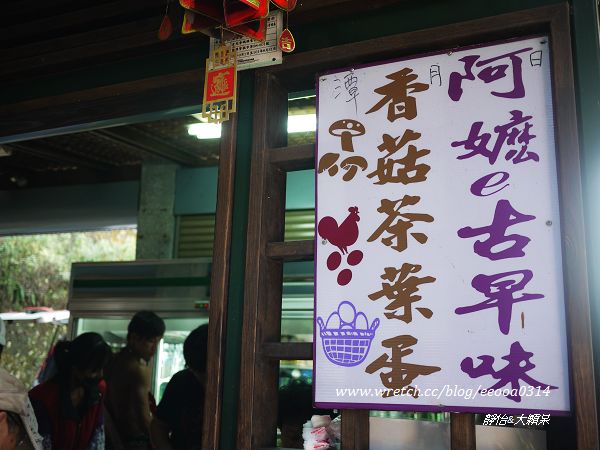 日月潭
阿嬤e古早味
香菇茶葉蛋
www.wretch.cc/blog/eeooa0314
靜怡&大顆呆